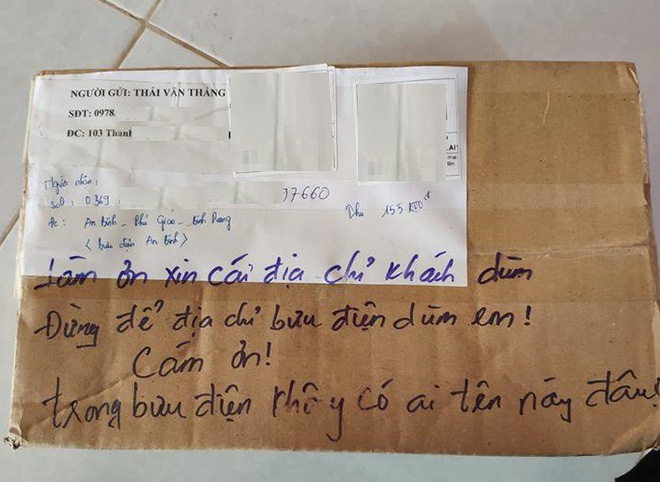 NGƯỜI GỬI: THÁI VĂN THẮNG
SĐT: 0978.
ĐC: 103 Thanh
Người nhận:
sđt: 0369 37660
Đc: An Bình _ Phú Giáo _ Bình Dương
< bưu điện An Bình >
Thu 155 000 đ
Làm ơn xin cái địa chỉ khách dùm
Đừng để địa chỉ bưu điện dùm em!
Cám ơn!
trong bưu điện không có ai tên này đâu!